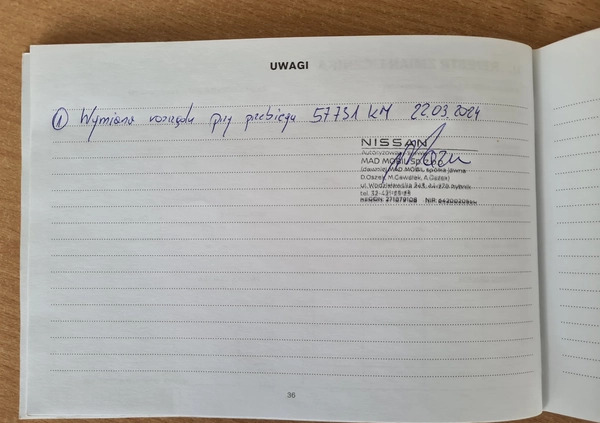 UWAGI
① Wymiana rozrządu przy przebiegu 57731 KM 22.03.2024
NISSAN
Autoryzowany
MAD MOBIL Sp. z o.o.
(dawniej MAD MOBIL spółka jawna
D.Oszek, M.Gawełek, A.Oszek)
ul. Wodzisławska
tel. 32
REGON: 271079108 NIP:
36